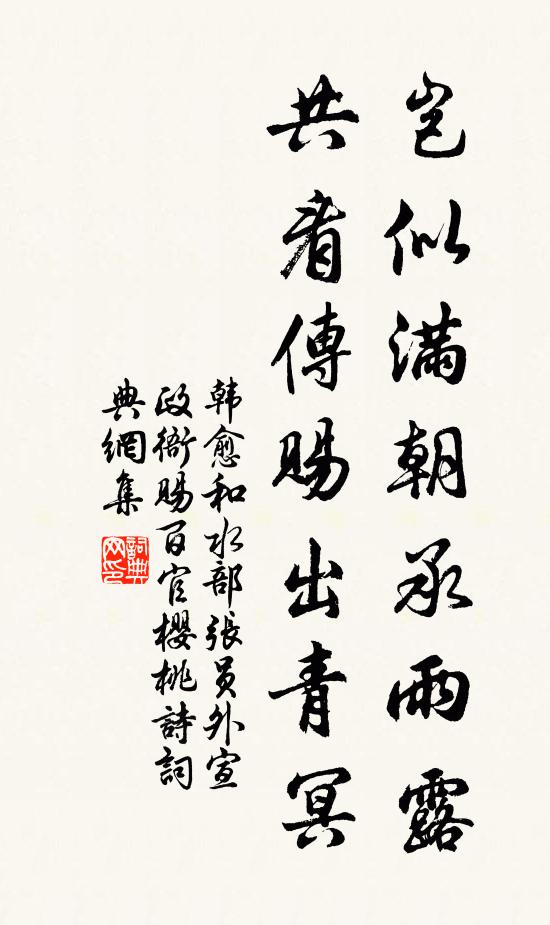 豈似滿朝承雨露
共看傳賜出青冥
韓愈和水部張員外宣
政衙賜百官櫻桃詩詞
典網集
詞典
网印